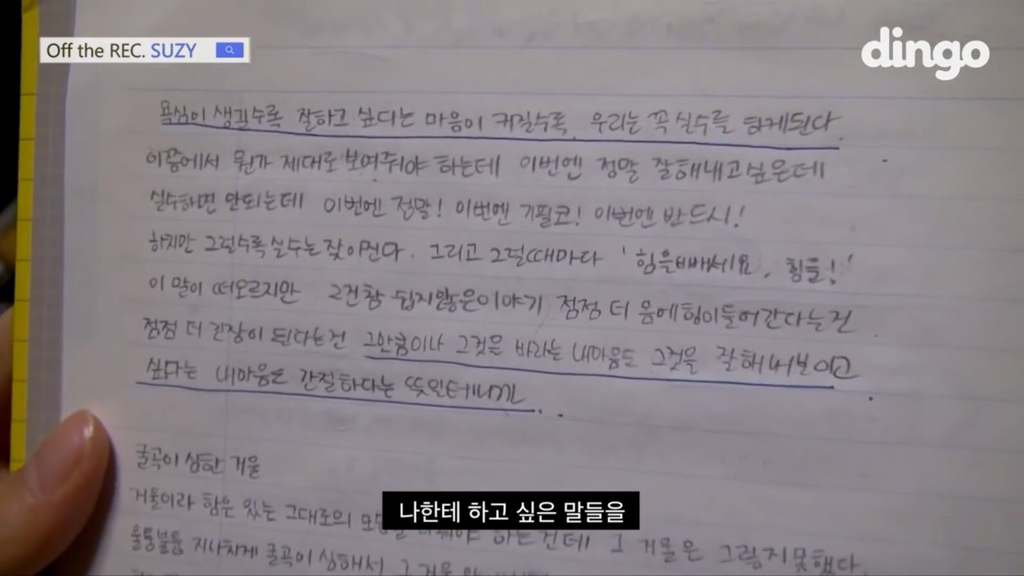 Off the REC. SUZY
dingo
욕심이 생길수록 잘하고 싶다는 마음이 커질수록, 우리는 꼭 실수를 하게된다.
이쯤에서 뭔가 제대로 보여줘야 하는데 이번엔 정말 잘해내고싶은데
실수하면 안되는데 이번엔 정말! 이번엔 기필코! 이번엔 반드시!
하지만 그럴수록 실수는 잦아진다. 그리고 그럴때마다 '힘을빼세요, 힘들!'
이 말이 떠오르지만 그건참 쉽지않은이야기 점점 더 몸에힘이들어간다는건
점점 더 긴장이 된다는건 그만큼이나 그것을 바라는 내마음도 그것을 잘해내보이고
싶다는 내마음도 간절하다는 뜻일테니까...
굴곡이 심한 거울
거울이라 함은 있는 그대로의 하는건데 그 거울은 그렇지못했다.
울퉁불퉁 지나치게 굴곡이 심해서 그 거울
나한테 하고 싶은 말들을